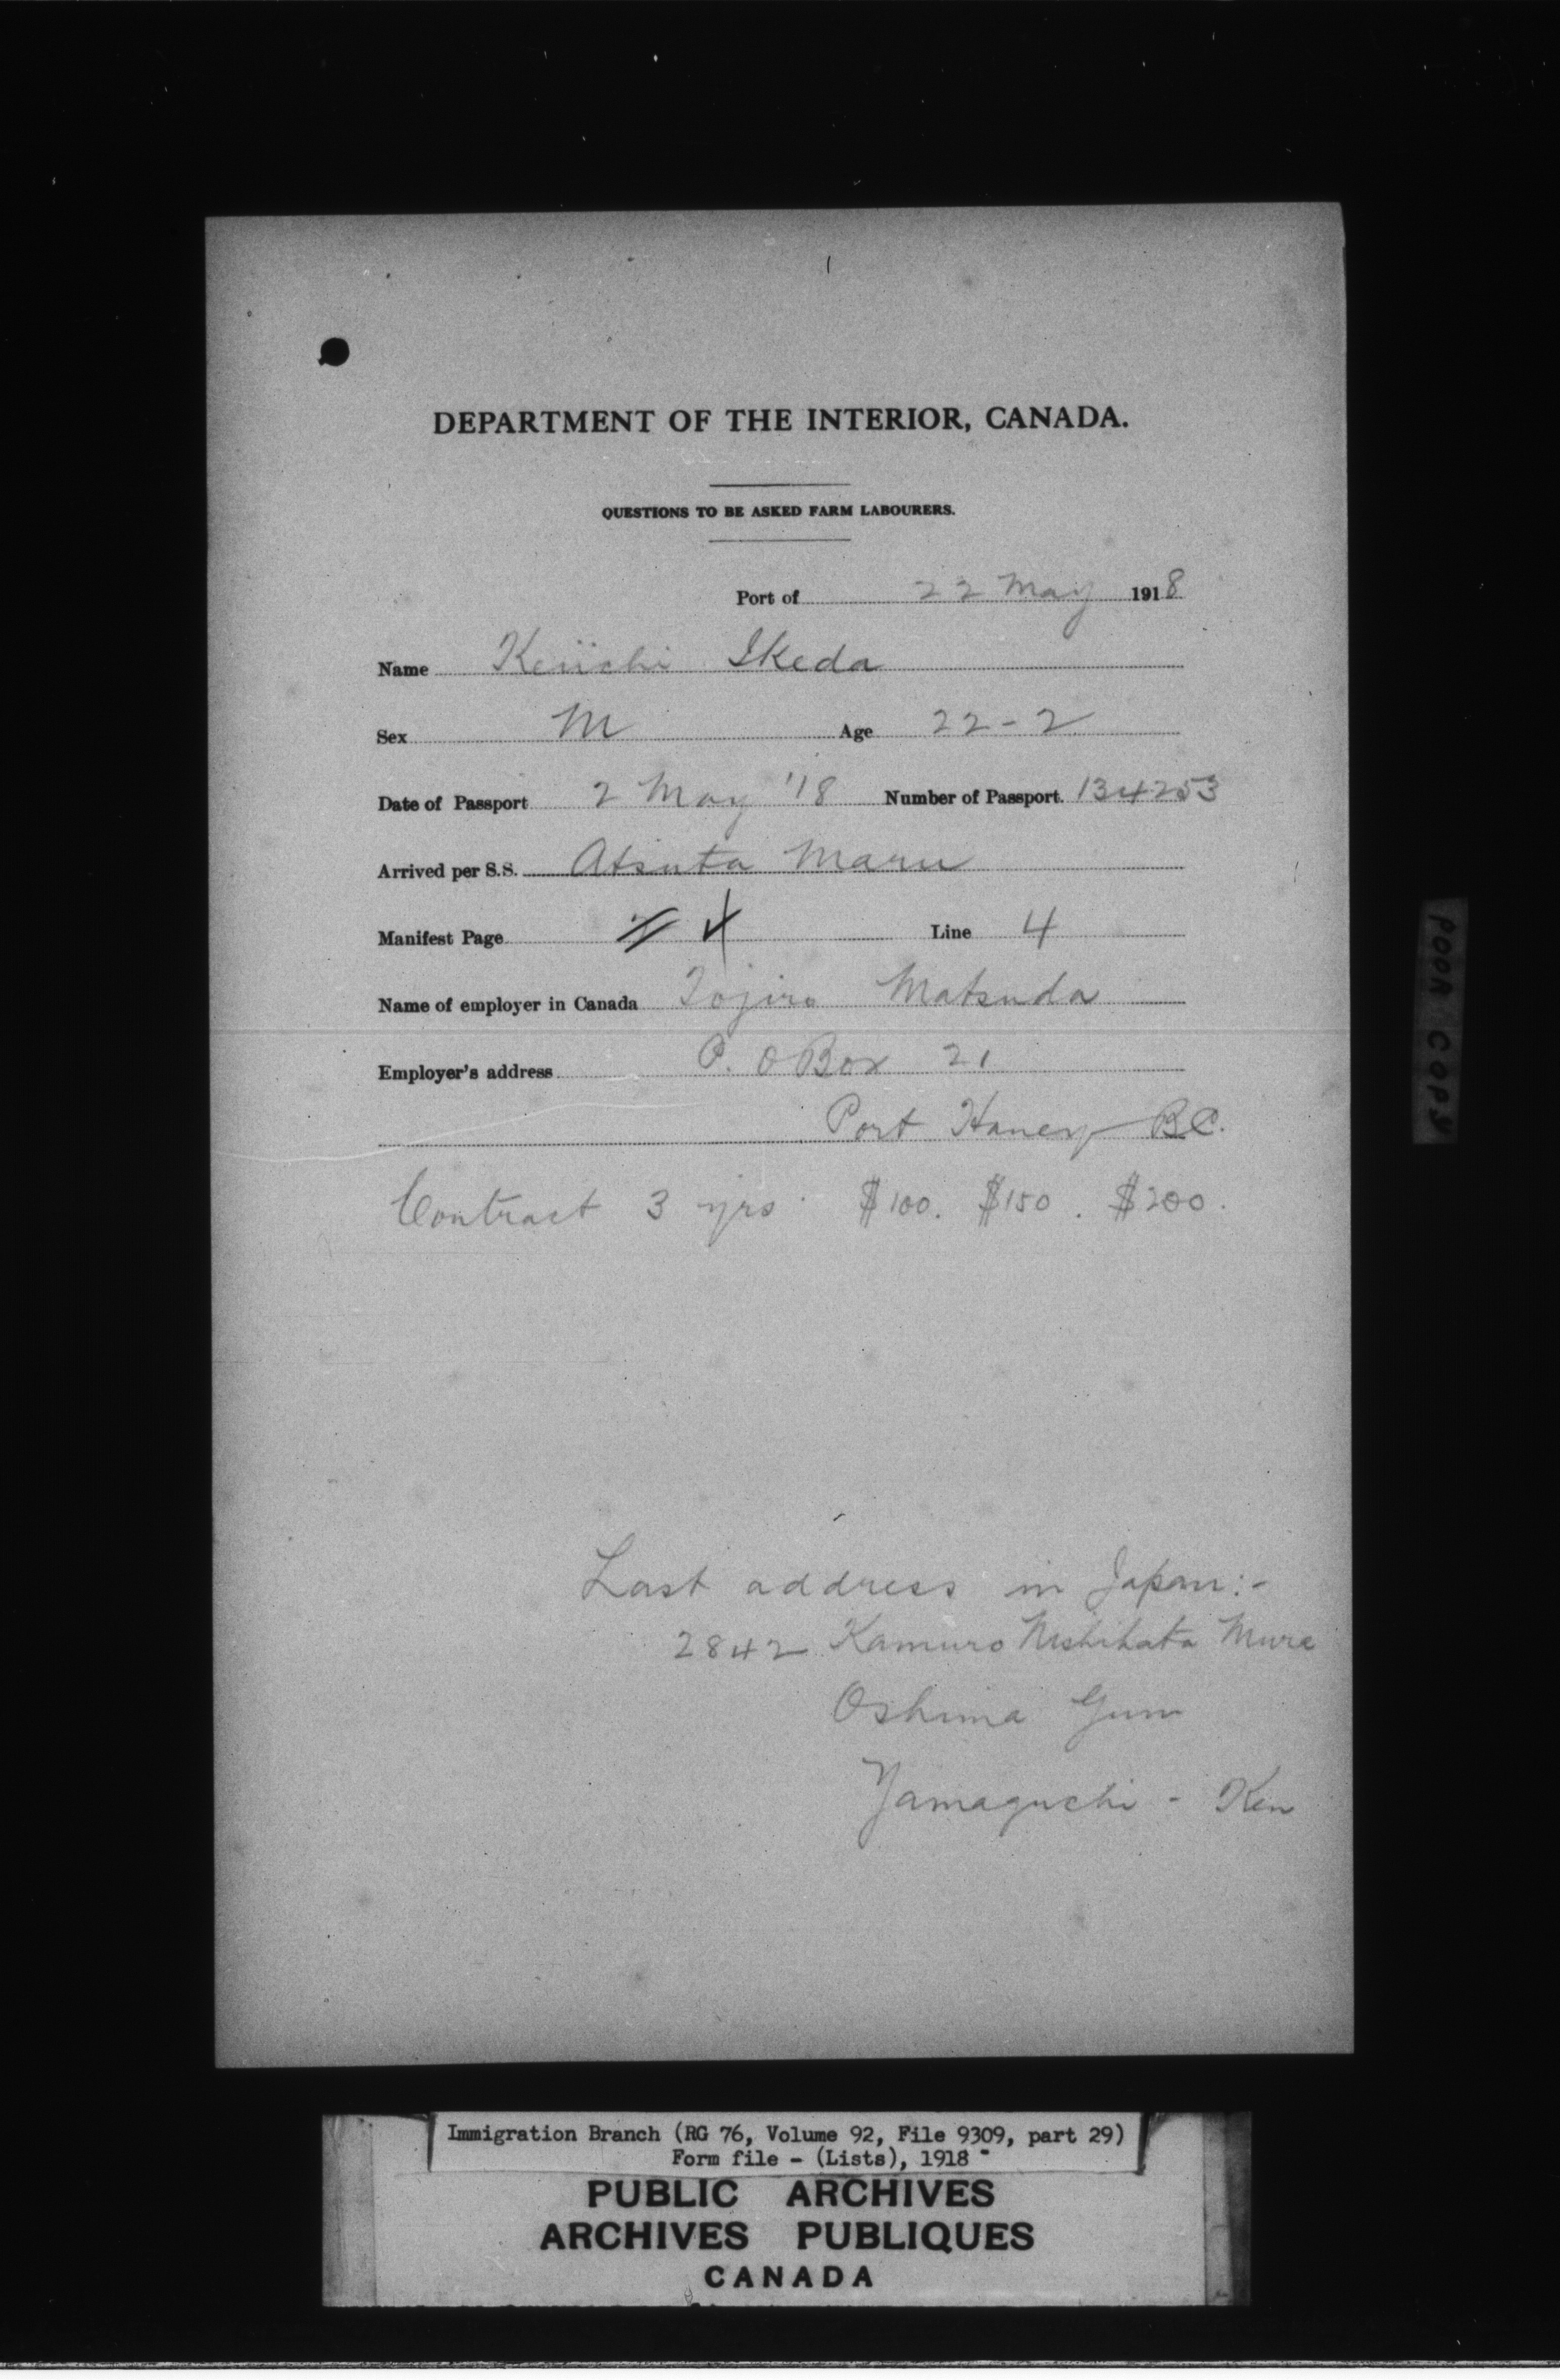 DEPARTMENT OF THE INTERIOR, CANADA.
QUESTIONS TO BE ASKED FARM LABOURERS.
Port of 22 May 1918
Name Keiichi Ikeda
Sex M Age 22-2
Date of Passport 2 May '18 Number of Passport. 134253
Arrived per S.S. Atsuta Maru
Manifest Page 4 Line 4
Name of employer in Canada Tojiro Matsuda
Employer's address P. O Box 21
Port Haney B.C.
Contract 3 yrs. $100. $150. $200.
Last address in Japan:-
2842 Kamuro Nishihata Mura
Oshima Gun
Yamaguchi - Ken
POOR COPY
Immigration Branch (RG 76, Volume 92, File 9309, part 29)
Form file - (Lists), 1918
PUBLIC ARCHIVES
ARCHIVES PUBLIQUES
CANADA